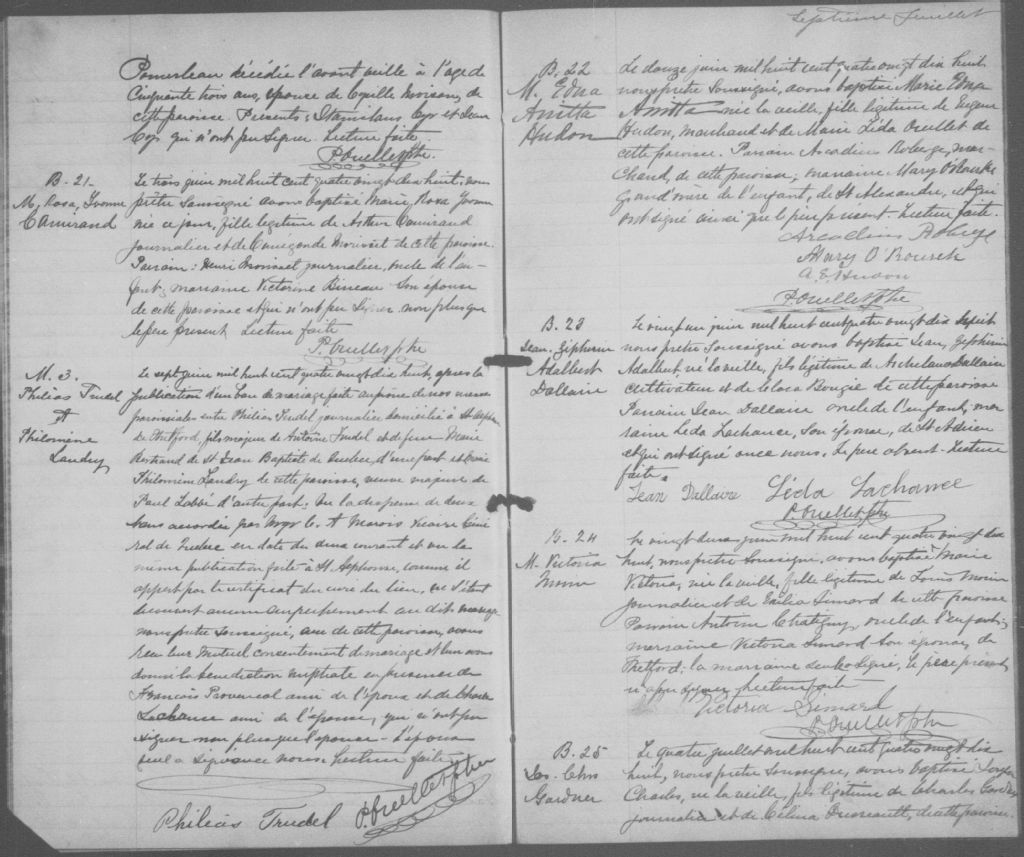 Pomerleau décédée l'avant veille à l'age de
Cinquante trois ans, épouse de Cyrille Morisson, de
cette paroisse. Presents: Stanislaus Cyr et Jean
Cyr qui n'ont pu signer. Lecture faite
P. Ouellet Ptre.
B. 21.
M, Rosa, Ivonne
Camirand
Le trois juin mil huit cent quatre vingt dix huit, nous
prêtre soussigné avons baptisé Marie, Rosa Ivonne
née ce jour, fille légitime de Arthur Camirand
journalier et de Cunegonde Morisset de cette paroisse.
Parrain: Henri Morisset journalier, oncle de l'en-
fant; marraine Victorine Bineau son épouse
de cette paroisse et qui n'ont pu signer non plus que
le père present. Lecture faite
P. Ouellet Ptre
M. 3.
Philéas Trudel
&
Philomène
Landry
Le sept juin mil huit cent quatre vingt dix huit, après la
publication d'un ban de mariage faite au prône de nos messes
paroissiales entre Philéas Trudel, journalier domicilié à St Alphonse
de Thetford, fils majeur de Antoine Trudel et de feue Marie
Bertrand de St Jean Baptiste de Quebec, d'une part et
Philomène Landry de cette paroisse, veuve majeure de
Paul Labbé d'autre part; Vu la dispense de deux
bans accordée par Mgr C. A Marois Vicaire Géné
ral de Quebec en date du deux courant et vu la
même publication faite à St Alphonse, comme il
appert par le certificat du curé du lieu, ne s'étant
découvert aucun empechement au dit mariage
nous prêtre soussigné, curé de cette paroisse, avons
recu leur mutuel consentement de mariage et leur avons
donné la bénédiction nuptiale en présence de
Francois Provencal ami de l'époux et de
Lachance ami de l'épouse, qui n'ont pu
signer non plus que l'épouse - L'époux
seul a signé avec nous. Lecture faite
Philéas Trudel P. Ouellet Ptre
Septième feuillet
B. 22
M. Edna
Anitta
Hudon
Le douze juin mil huit cent quatre vingt dix huit
nous prêtre soussigné, avons baptisé Marie Edna
Anitta née la veille, fille légitime de Eugene
Hudon, marchand et de Marie Léda Ouellet de
cette paroisse. Parrain Arcadius Roberge, mar-
chand, de cette paroisse; marraine Mary O'Rourke
Grand'mère de l'enfant, de St Alexandre, et qui
ont signé ainsi que le père présent. Lecture faite.
Arcadius Roberge
Mary O'Rourck
A. E. Hudon
P. Ouellet Ptre
B. 23
Jean, Zéphirin
Adalbert
Dallaire
Le vingt un juin mil huit cent quatre vingt dix huit
nous prêtre soussigné avons baptisé Jean, Zéphirin
Adalbert, né la veille, fils légitime de Archelaus Dallaire
cultivateur et de Clara Bougie de cette paroisse
Parrain Jean Dallaire oncle de l'enfant, mar
raine Leda Lachance, son épouse, de St Adrien
et qui ont signé avec nous. Le père absent. Lecture
faite.
Jean Dallaire Léda Lachance
P. Ouellet Ptre
B. 24
M. Victoria
Morin
Le vingt deux juin mil huit cent quatre vingt dix
huit, nous prêtre soussigné, avons baptisé Marie
Victoria, née la veille, fille légitime de Louis Morin
journalier et de Emilia Simard de cette paroisse
Parrain Antoine Chatigny, oncle de l'enfant,
marraine Victoria Simard son épouse, de
Thetford. la marraine seule a signé, le père présent
n'a pu signer. Lecture faite
Victoria Simard
P. Ouellet Ptre
B. 25
Jos. Chs
Gardner
Le quatre juillet mil huit cent quatre vingt dix
huit, nous prêtre soussigné, avons baptisé Joseph
Charles, né la veille, fils légitime de Charles Gardner
journalier et de Célina de cette paroisse.